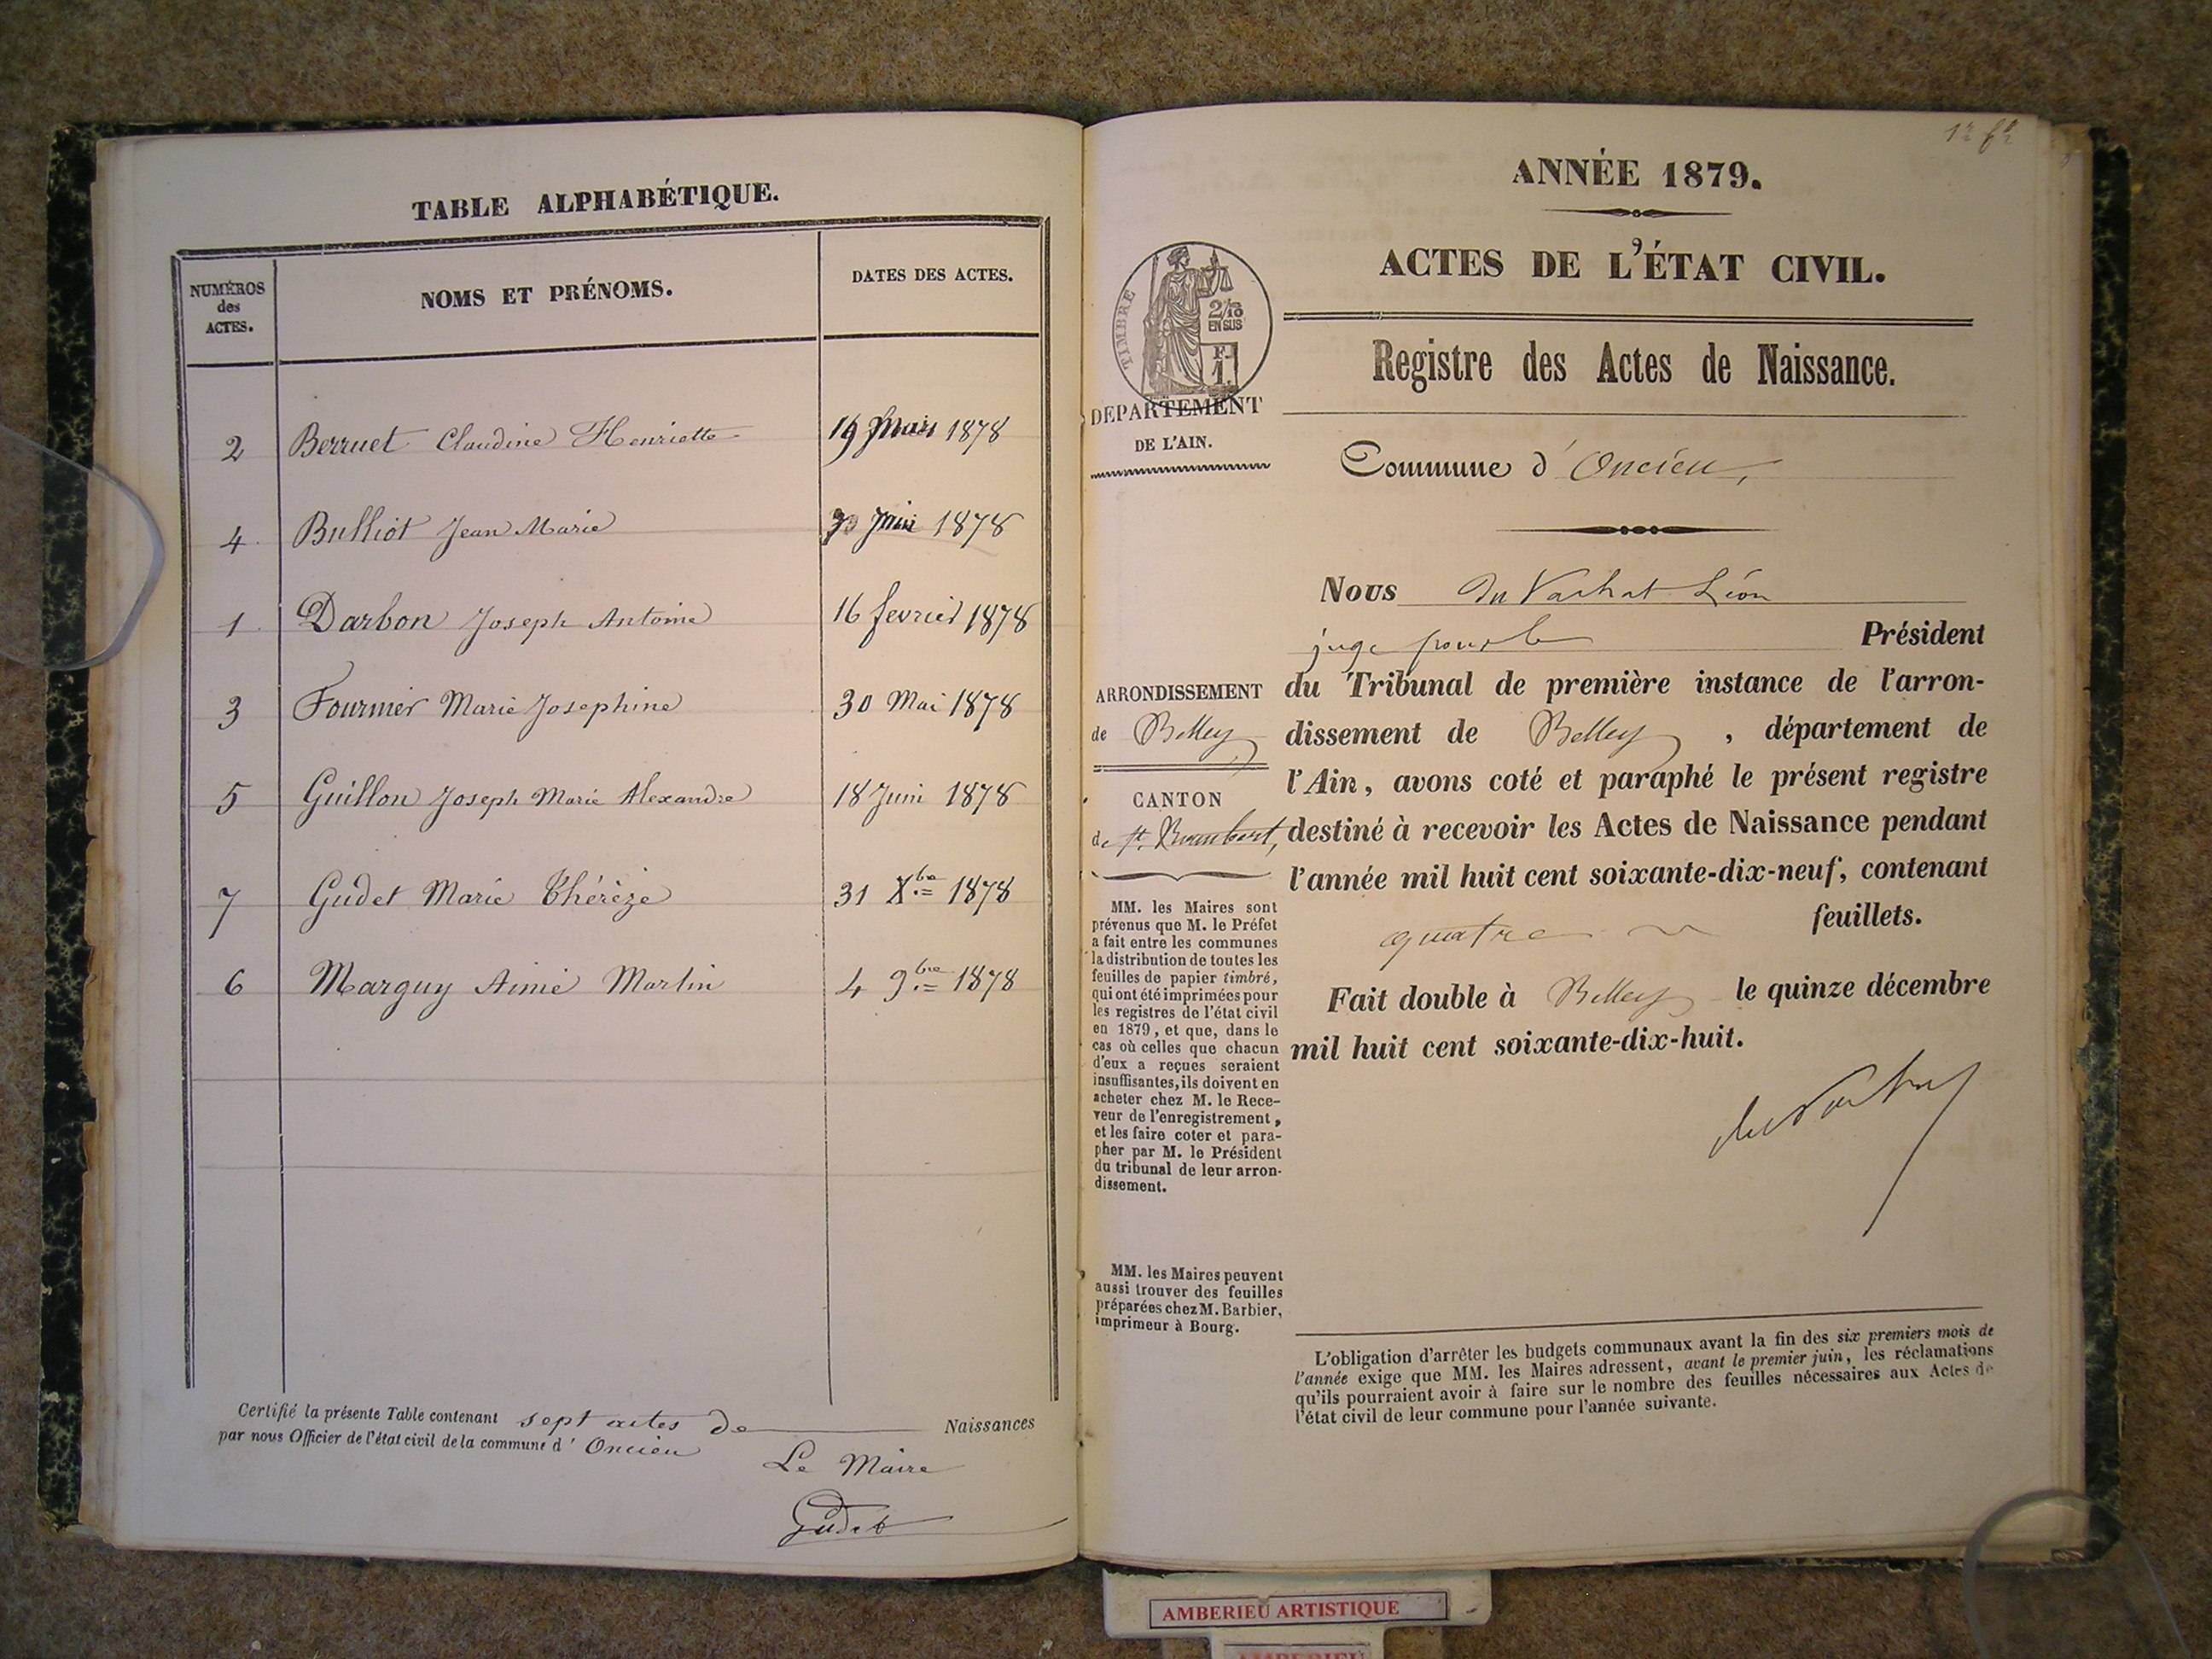 TABLE ALPHABÉTIQUE.
NUMÉROS
des
ACTES.
NOMS ET PRÉNOMS.
DATES DES ACTES.
2 Berruet Claudine Henriette 19 mars 1878
4 Bulliot Jean Marie 1878
1 Darbon Joseph Antoine 16 fevrier 1878
3 Fournier Marie Josephine 30 Mai 1878
5 Guillon Joseph Marie Alexandre 18 Juin 1878
7 Gudet Marie Thérèze 31 Xbre 1878
6 Marguy Aimé Martin 4 9bre 1878
Certifié la présente Table contenant sept actes de Naissances
par nous Officier de l'état civil de la commune d' Oncieu
Le Maire
Gudet
ANNÉE 1879.
ACTES DE L'ÉTAT CIVIL.
Registre des Actes de Naissance.
TIMBRE
2/10
EN SUS
F.
1.
DEPARTEMENT
DE L'AIN.
Commune d' Oncieu,
Nous du Vachat Léon
juge pour le Président
du Tribunal de première instance de l'arron-
dissement de Belley, département de
l'Ain, avons coté et paraphé le présent registre
destiné à recevoir les Actes de Naissance pendant
l'année mil huit cent soixante-dix-neuf, contenant
quatre feuillets.
Fait double à Belley le quinze décembre
mil huit cent soixante-dix-huit.
ARRONDISSEMENT
de Belley
CANTON
de St. Rambert,
MM. les Maires sont
prévenus que M. le Préfet
a fait entre les communes
la distribution de toutes les
feuilles de papier timbré,
qui ont été imprimées pour
les registres de l'état civil
en 1879, et que, dans le
cas où celles que chacun
d'eux a reçues seraient
insuffisantes, ils doivent en
acheter chez M. le Rece-
veur de l'enregistrement,
et les faire coter et para-
pher par M. le Président
du tribunal de leur arron-
dissement.
MM. les Maires peuvent
aussi trouver des feuilles
préparées chez M. Barbier,
imprimeur à Bourg.
L'obligation d'arrêter les budgets communaux avant la fin des six premiers mois de
l'année exige que MM. les Maires adressent, avant le premier juin, les réclamations
qu'ils pourraient avoir à faire sur le nombre des feuilles nécessaires aux Actes de
l'état civil de leur commune pour l'année suivante.
AMBERIEU ARTISTIQUE
AMBERIEU